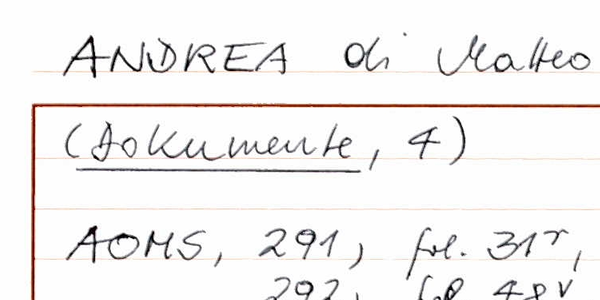 ANDREA di Matteo
(Dokumente, 4)
AOMS, 291, fol. 31r,
292, fol 48v